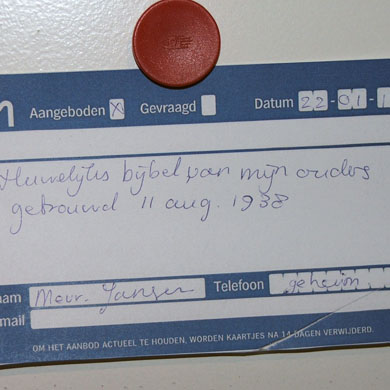 Aangeboden X Gevraagd Datum 22-01-1
Huwelijks bijbel van mijn ouders
getrouwd 11 aug. 1938
aam Mevr. Jansen Telefoon geheim
mail
OM HET AANBOD ACTUEEL TE HOUDEN, WORDEN KAARTJES NA 14 DAGEN VERWIJDERD.